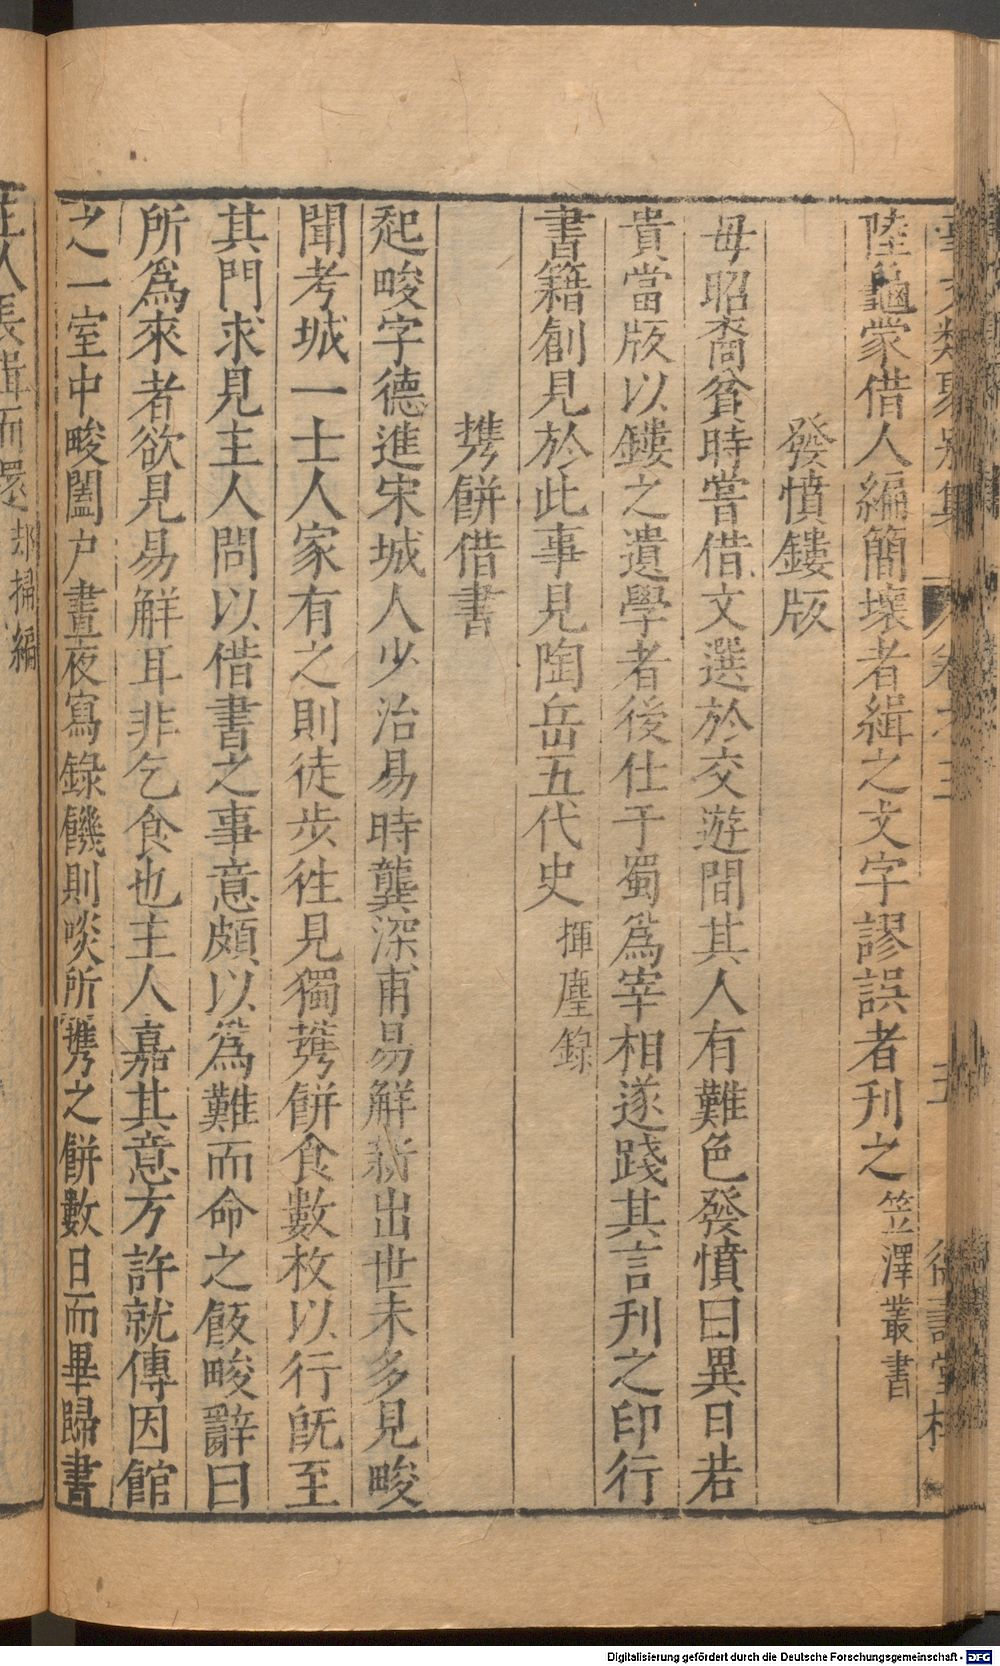 陸龜蒙借人編簡壞者緝之文字謬誤者刋之 笠澤叢書
發憤鏤版
毋昭裔貧時嘗借文選於交遊間其人有難色發憤曰異日若
貴當版以鏤之遺學者後仕于蜀爲宰相遂踐其言刋之印行
書籍創見於此事見陶岳五代史 揮塵録
携餅借書
起畯字德進宋城人少治易時龔深甫易解新出世未多見畯
聞考城一士人家有之則徒步徃見獨携餅食數枚以行旣至
其門求見主人問以借書之事意頗以爲難而命之飯畯辭曰
所爲來者欲見易解耳非乞食也主人嘉其意方許就傳因館
之一室中畯闔户晝夜寫錄饑則啖所携之餅數日而畢歸書
主人長揖而還 却掃編
Digitalisierung gefördert durch die Deutsche Forschungsgemeinschaft - DFG